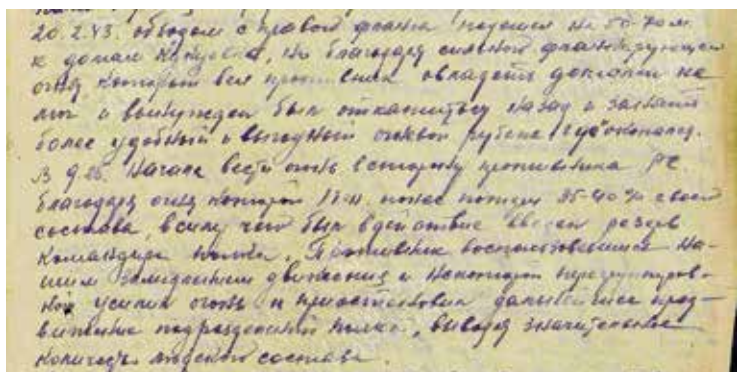 20.2.43. обходом с правого фланга подошел на 50-70 м
к домам, но благодаря сильной фланкирующей
огня, который вел противник овладеть домами не
мог и вынужден был откатиться назад и занять
более удобный и выгодный огневой рубеж, где окопался.
В 9.25. Начале вести огонь в сторону противника РС
благодаря огня которой понес потери 35-40% своего
состава, в силу чего был в действие введен резерв
командира полка. Противник воспользовавшись на-
шим замедлением движения и некоторой перегруппиров-
кой усилил огонь и приостановил дальнейшее прод-
вижение подразделений полка, выводя значительное
количеств. людского состава.